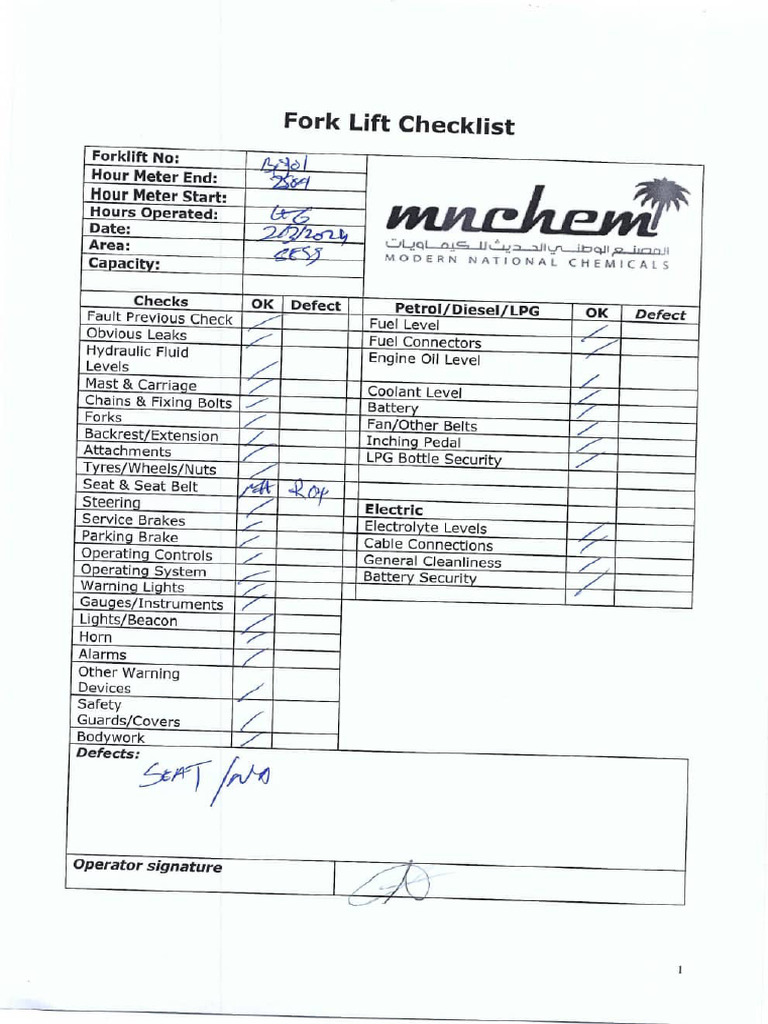 Fork Lift Checklist
Forklift No:
Hour Meter End: 2584
Hour Meter Start:
Hours Operated:
Date:
Area:
Capacity:
mnchem
المصنع الوطني الحديث للكيماويات
MODERN NATIONAL CHEMICALS
Checks OK Defect
Fault Previous Check
Obvious Leaks
Hydraulic Fluid
Levels
Mast & Carriage
Chains & Fixing Bolts
Forks
Backrest/Extension
Attachments
Tyres/Wheels/Nuts
Seat & Seat Belt
Steering
Service Brakes
Parking Brake
Operating Controls
Operating System
Warning Lights
Gauges/Instruments
Lights/Beacon
Horn
Alarms
Other Warning
Devices
Safety
Guards/Covers
Bodywork
Petrol/Diesel/LPG OK Defect
Fuel Level
Fuel Connectors
Engine Oil Level
Coolant Level
Battery
Fan/Other Belts
Inching Pedal
LPG Bottle Security
Electric
Electrolyte Levels
Cable Connections
General Cleanliness
Battery Security
Defects:
SEAT
Operator signature
1